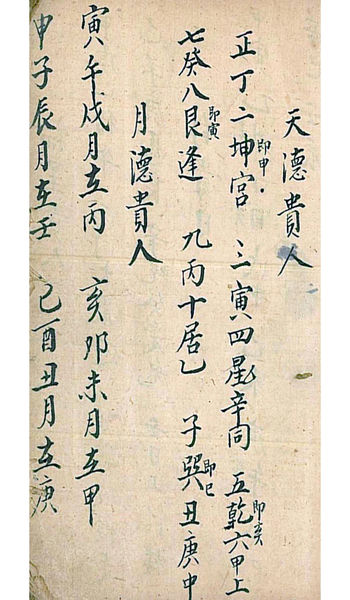 天德貴人
正丁二坤即申宮 三寅四星辛同 五乾即亥六甲上
七癸八艮即寅逢 九丙十居乙 子巽即巳丑庚中
月德貴人
寅午戌月在丙 亥卯未月在甲
申子辰月在壬 巳酉丑月在庚